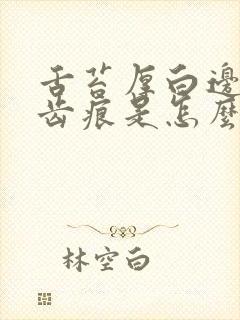 舌苔厚白邊
齿痕是怎麼
林空白